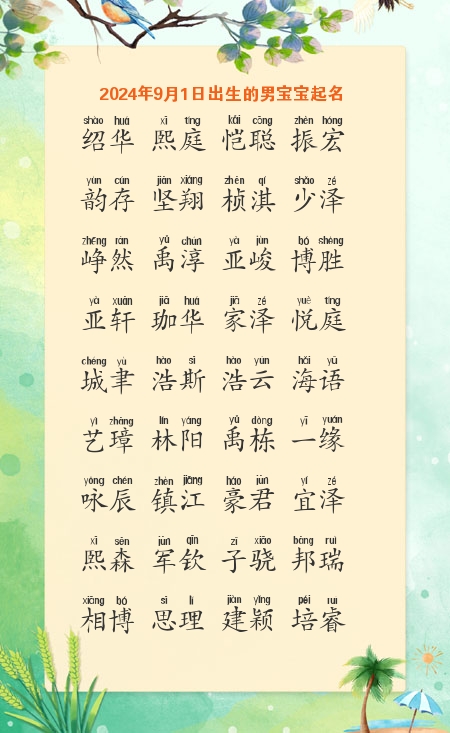 2024年9月1日出生的男宝宝起名
shào huá xī tíng kǎi cōng zhèn hóng
绍华 熙庭 恺聪 振宏
yùn cún jiān xiáng zhēn qí shào zé
韵存 坚翔 桢淇 少泽
zhēng rán yǔ chún yà jùn bó shèng
峥然 禹淳 亚峻 博胜
yà xuān jiā huá jiā zé yuè tíng
亚轩 珈华 家泽 悦庭
chéng yù hào sī hào yún hǎi yǔ
城聿 浩斯 浩云 海语
yì zhāng lín yáng yǔ dòng yī yuán
艺璋 林阳 禹栋 一缘
yǒng chén zhèn jiāng háo jūn yí zé
咏辰 镇江 豪君 宜泽
xī sēn jūn qīn zǐ xiāo bāng ruì
熙森 军钦 子骁 邦瑞
xiāng bó sī lǐ jiàn yǐng péi ruì
相博 思理 建颖 培睿